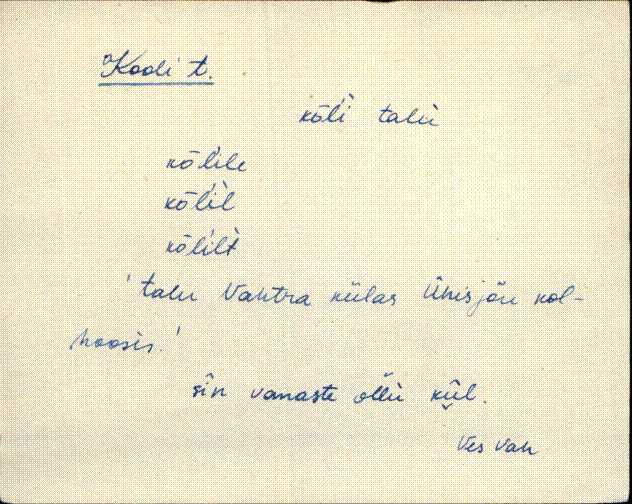 Koodi t.
kōĺi talu
kōĺile
kōĺil
kōĺilt
'talu Vahtra külas Ühisjõu kol-
hoosis.'
sîn vanaste õllu kül.
Ves Vah